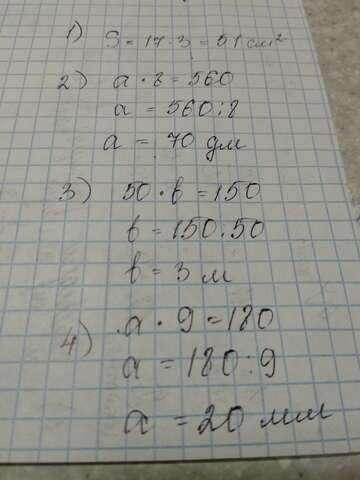 1) S = 17 · 3 = 51 см²
2) a · 8 = 560
a = 560 : 8
a = 70 дм
3) 50 · b = 150
b = 150 : 50
b = 3 м
4) a · 9 = 180
a = 180 : 9
a = 20 мм